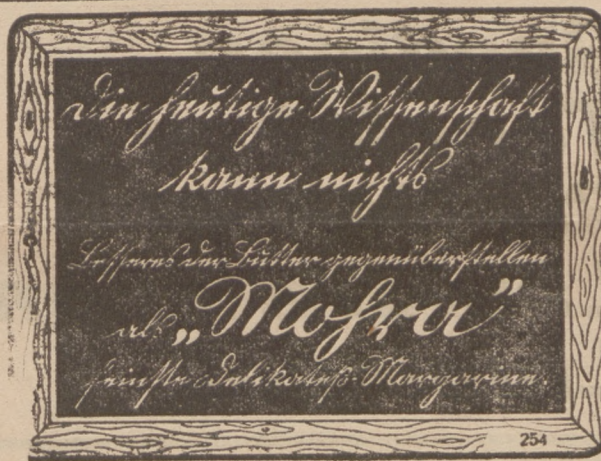 Die heutige Wissenschaft
kann nichts
Besseres der Butter gegenüberstellen
als „Mohra”
feinste Delikateß-Margarine.
254